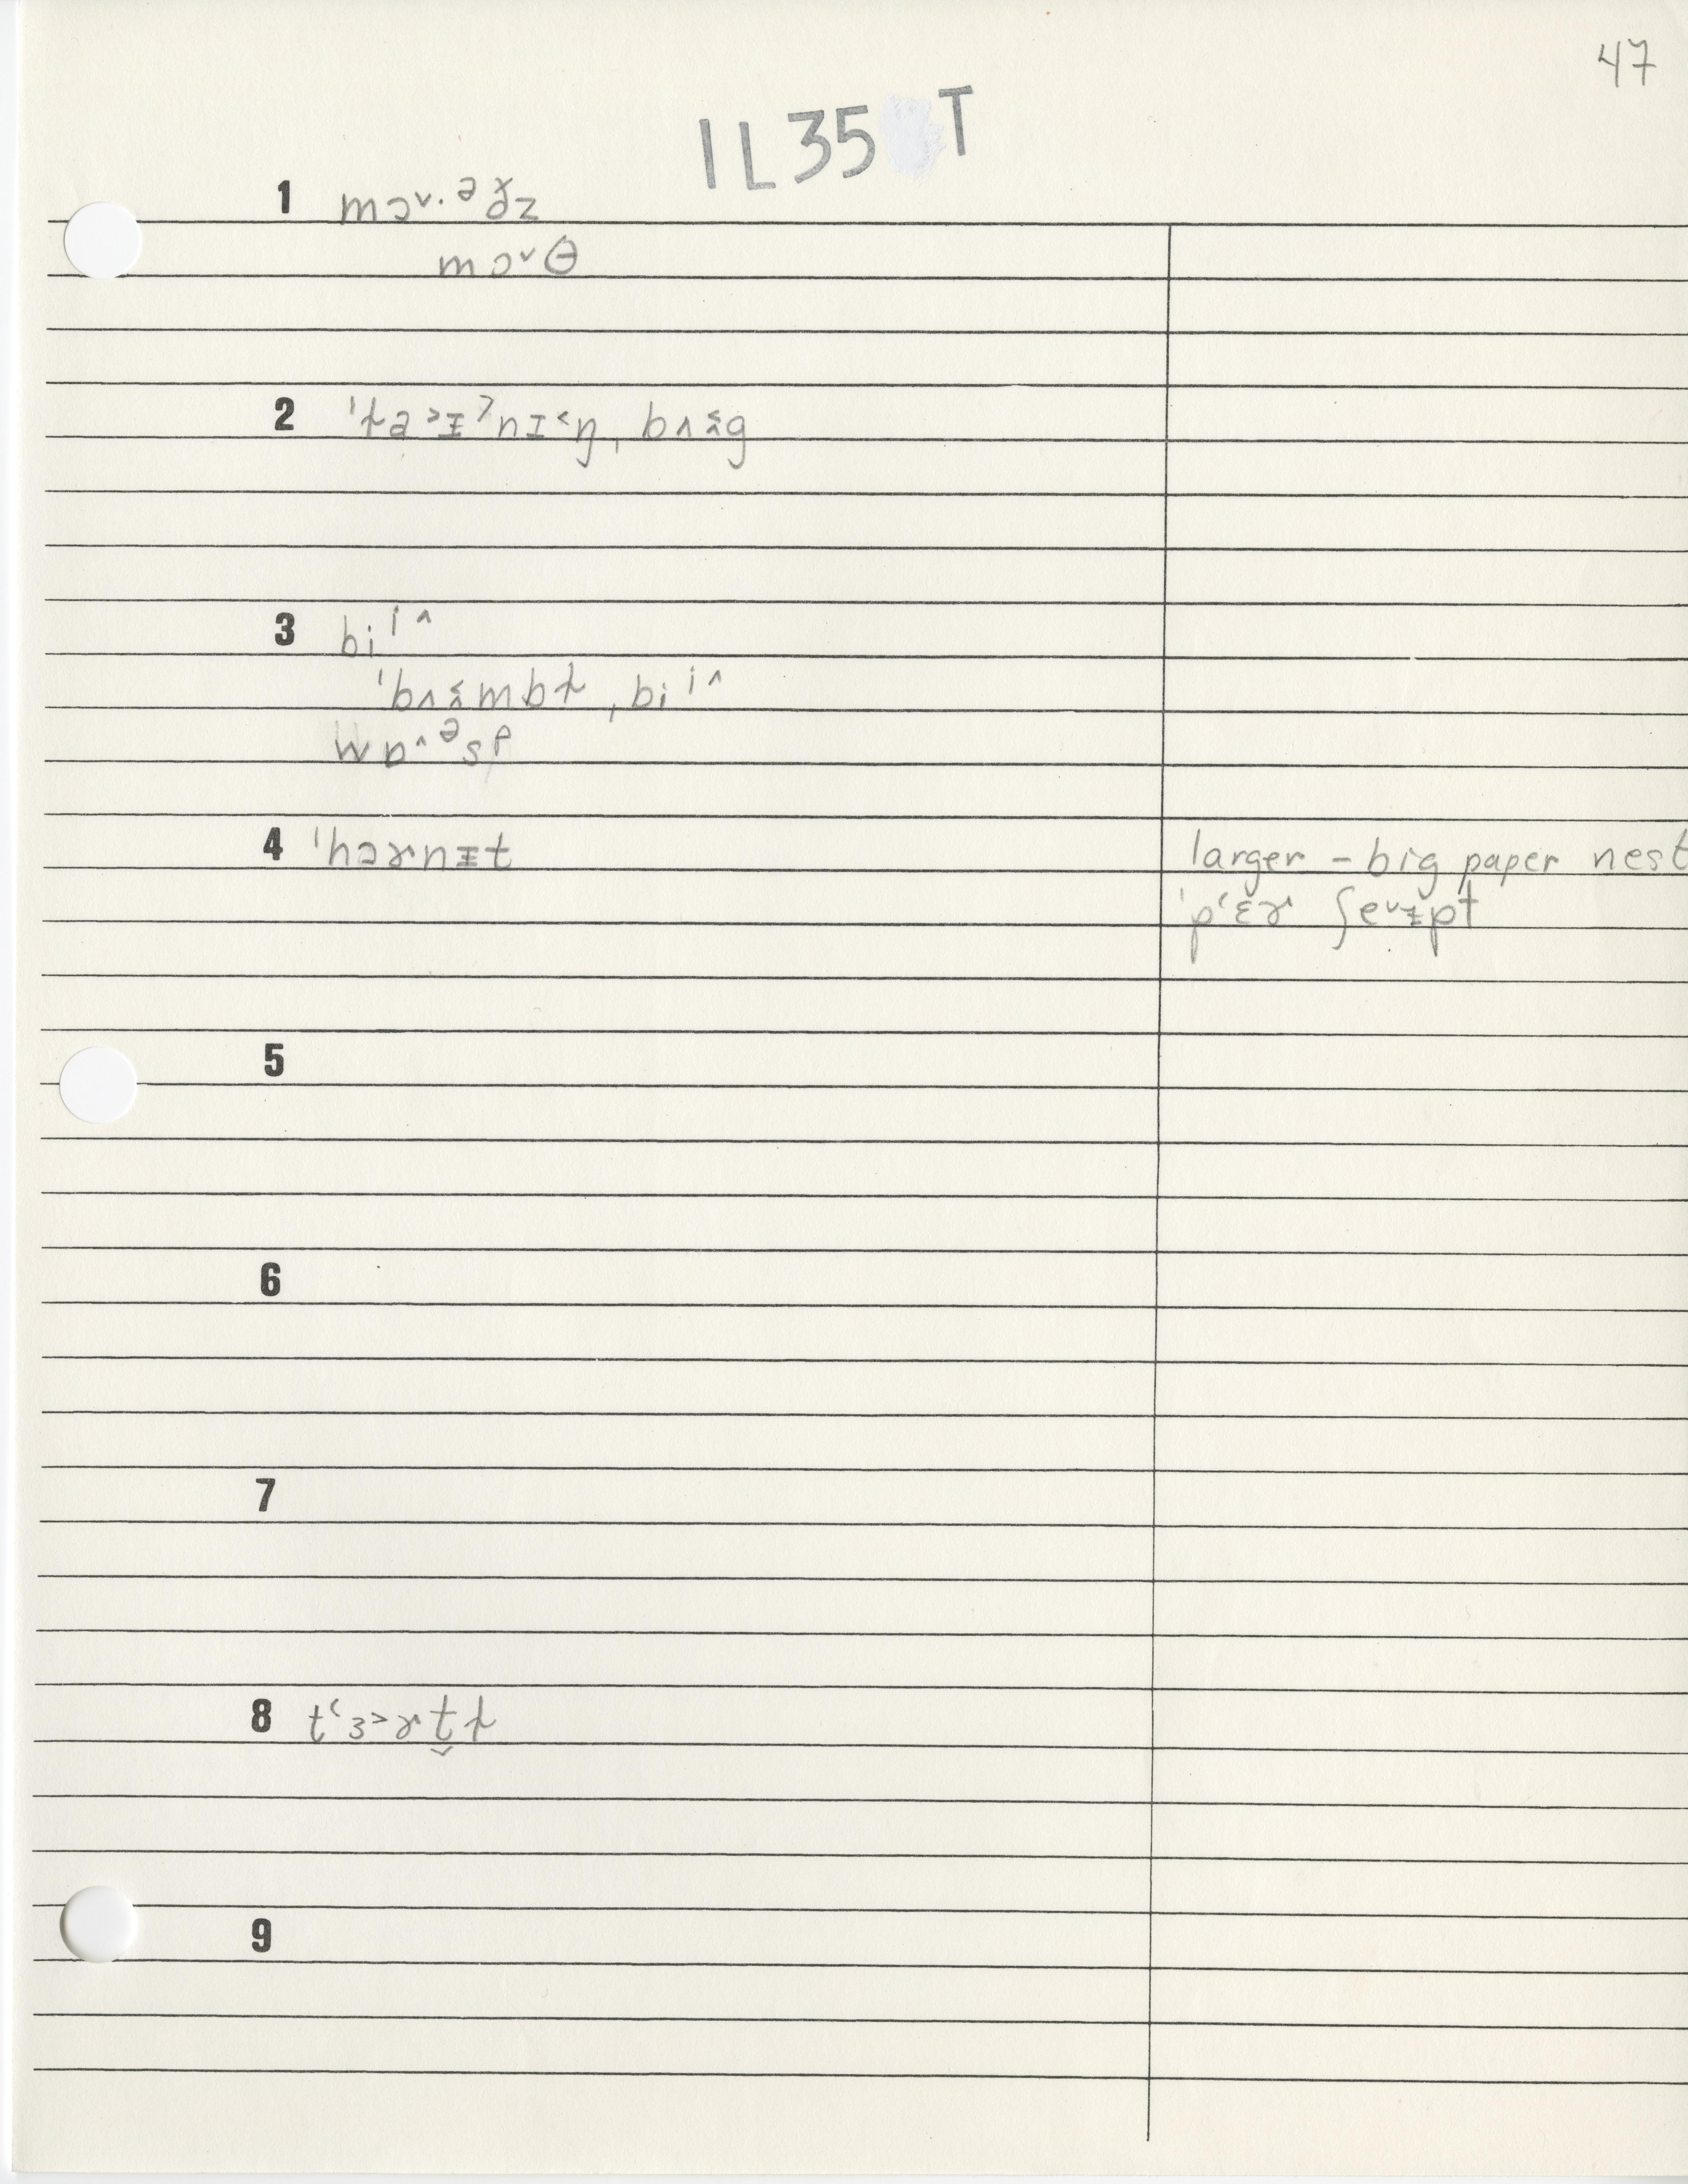 47
IL35 T
1 mɔ˅·ᵊðz
mɔ˅θ
2 ˈɫa˃ɪ̵ˀnɪ˂ŋ, bʌɪ̵g
3 biⁱ^
ˈbʌɪ̵mbɫ, biⁱ^
wɒ^ᵊsp
4 ˈhɔɚnɪ̵t larger – big paper nest
ˈpʻɛɚ ʃe˅ɪ̵pt
5
6
7
8 tʻɜ˃ɚt̬ɫ
9